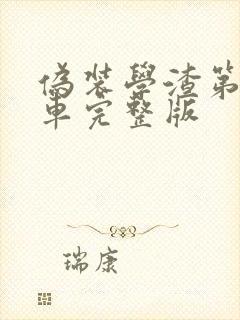 偽装學渣第
車完整版
瑞康